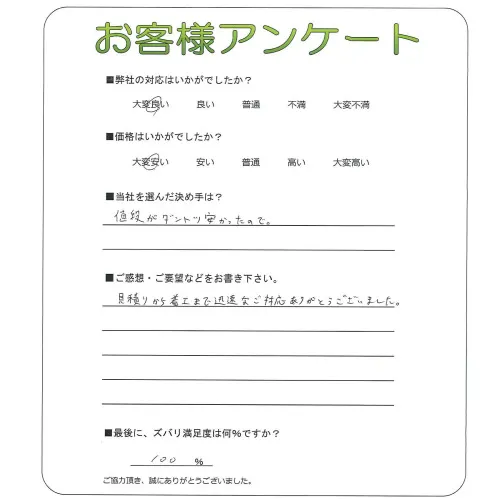 お客様アンケート
■弊社の対応はいかがでしたか？
大変良い 良い 普通 不満 大変不満
■価格はいかがでしたか？
大変安い 安い 普通 高い 大変高い
■当社を選んだ決め手は？
値段がダントツ安かったので。
■ご感想・ご要望などをお書き下さい。
見積りから着工まで迅速なご対応ありがとうございました。
■最後に、ズバリ満足度は何％ですか？
100 ％
ご協力頂き、誠にありがとうございました。